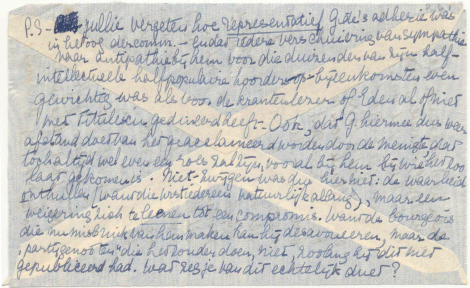 P.S. – jullie vergeten hoe representatief G.'s adhesie was
in betoog der comm. – en dat iedere verschuiving van sympathie
naar antipathie bij hem voor die duizenden van zijn half-
intellectuele half populaire hoorders op bijeenkomsten even
gewichtig was als voor de krantenlezer of Eden al of niet
met Titulescu gedineerd heeft. – Ook, dat G. hiermee dus was
afstand doet van het geacclameerd worden door de menigte, dat
toch altijd wel even een roes zal zijn, vooral bij hem bij wie het zo
laat gekomen is. Niet-zwijgen was dus hier niet: de waarheid
onthullen (want die wist iedereen natuurlijk allang), maar een
weigering zich te lenen tot een compromis. Want de bourgeois
die nu misbruik van hem maken kan hij desavoueren, maar de
„partijgenoten" die het zonder doen, niet, zoolang hij dit niet
gepubliceerd had. Wat zeg je van dit echtelijk duet?